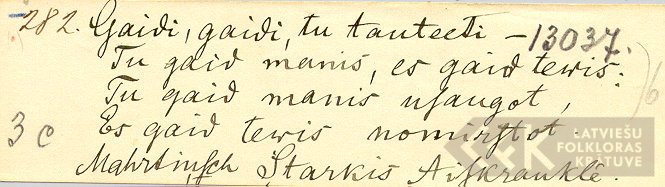 282. Gaidi, gaidi, tu tauteeti – 13037.
Tu gaid manis, es gaid tewis:
Tu gaid manis usaugot,
3c Es gaid tewis nomirstot.
Mahrtinsch Starkis Aiskraukle.
LATVIEŠU
FOLKLORAS
KRĀTUVE